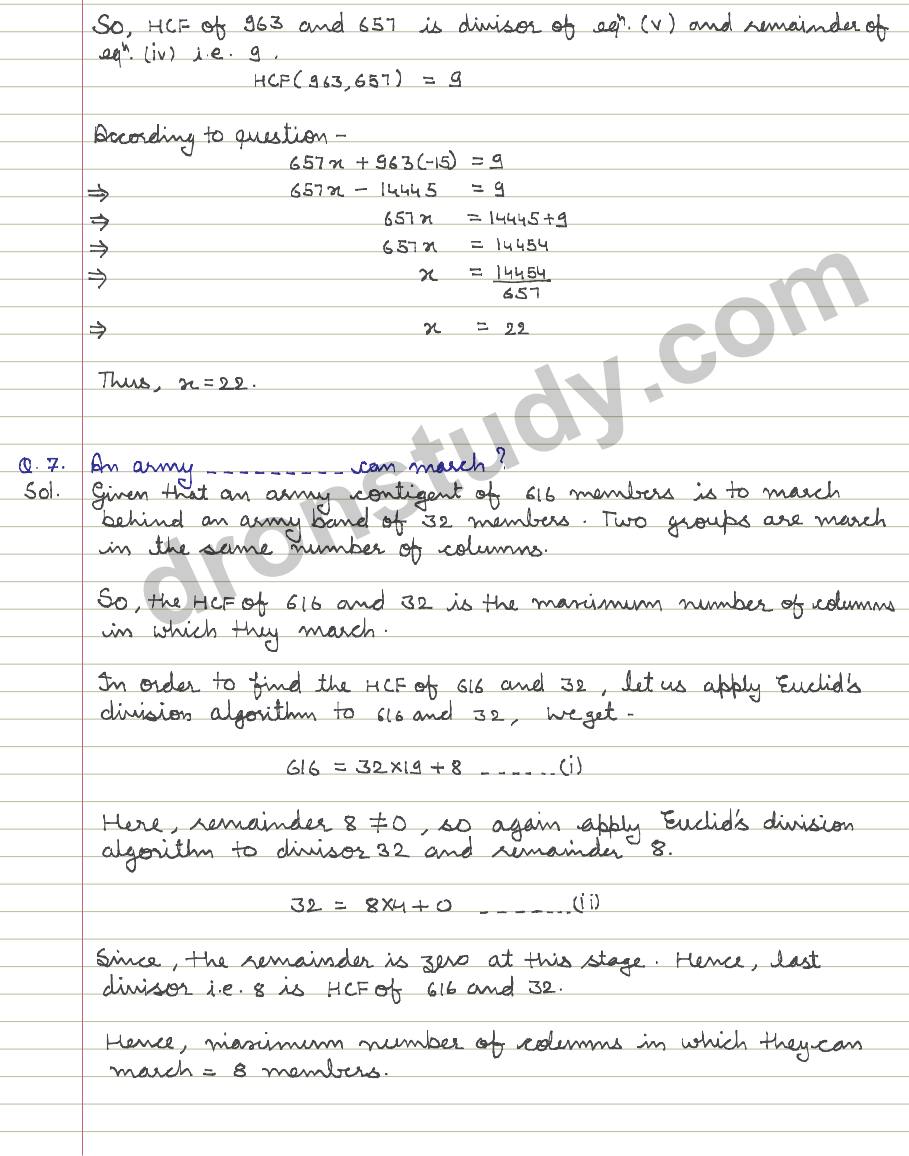 So, HCF of 963 and 657 is divisor of eqⁿ. (v) and remainder of
eqⁿ. (iv) i.e. 9.
HCF(963,657) = 9
According to question -
657x + 963(-15) = 9
⇒ 657x - 14445 = 9
⇒ 657x = 14445+9
⇒ 657x = 14454
⇒ x = 14454/657
⇒ x = 22
Thus, x = 22.
Q. 7. An army ---------- can march?
Sol. Given that an army contigent of 616 members is to march
behind an army band of 32 members. Two groups are march
in the same number of columns.
So, the HCF of 616 and 32 is the maximum number of columns
in which they march.
In order to find the HCF of 616 and 32, let us apply Euclid's
division algorithm to 616 and 32, we get -
616 = 32×19 + 8 ------(i)
Here, remainder 8 ≠ 0, so again apply Euclid's division
algorithm to divisor 32 and remainder 8.
32 = 8×4 + 0 -------(ii)
Since, the remainder is zero at this stage. Hence, last
divisor i.e. 8 is HCF of 616 and 32.
Hence, maximum number of columns in which they can
march = 8 members.
dronstudy.com